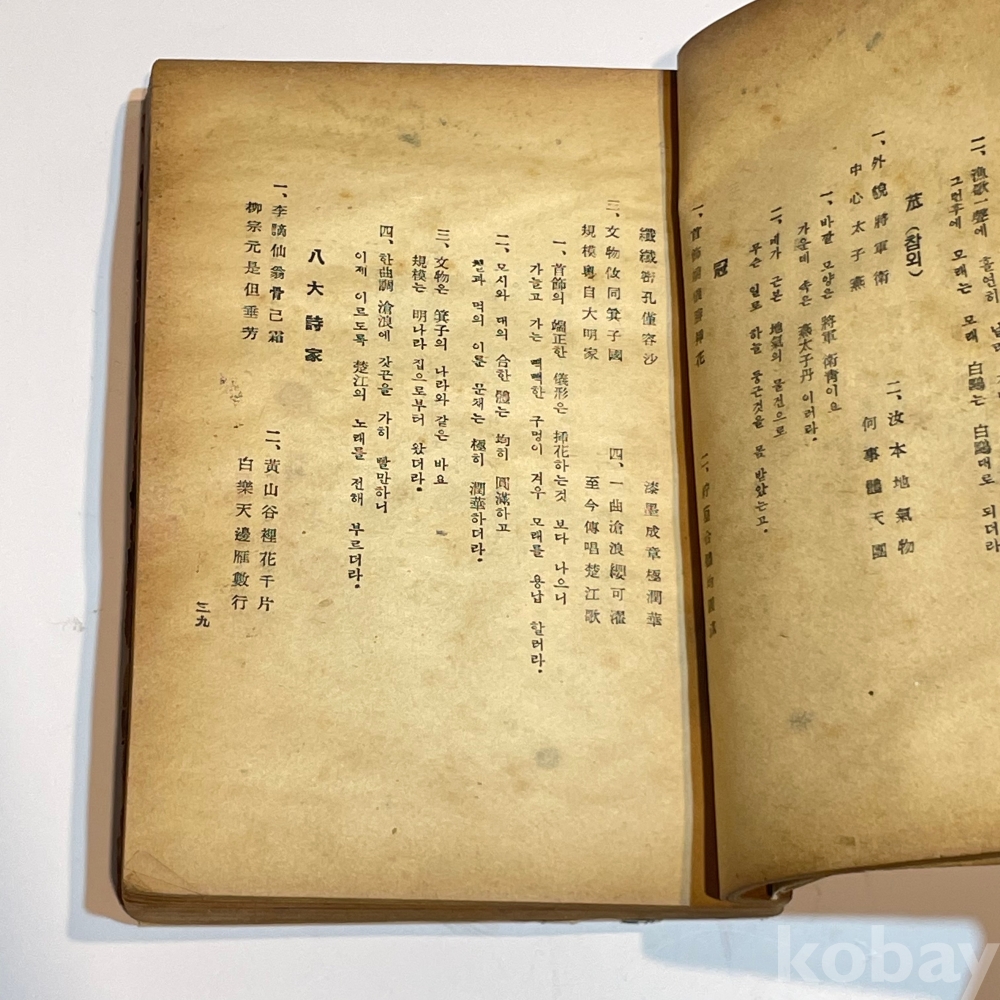 二、漁歌一聲에 홀연히
그런후에 모래는 모래 白鷗는 白鷗대로 되더라
苽 (참외)
一、外貌將軍衛
中心太子燕
二、汝本地氣物
何事體天團
一、바깥 모양은 將軍 衛靑이요
가운데 속은 燕太子丹 이러라.
二、네가 근본 地氣의 물건으로
무슨 일로 하늘 둥근것을 몸 받았는고.
冠
一、首飾端儀勝揷花
纖纖密孔僅容沙
漆墨成章極潤華
三、文物攸同箕子國
規模粤自大明家
四、一曲滄浪纓可濯
至今傳唱楚江歌
一、首飾의 端正한 儀形은 揷花하는것 보다 나으니
가늘고 가는 빽빽한 구멍이 겨우 모래를 용납 할러라.
二、모시와 대의 合한 體는 均히 圓滿하고
칠과 먹의 이룬 문채는 極히 潤華하더라.
三、文物은 箕子의 나라와 같은 바요
規模는 明나라 집으로부터 왔더라.
四、한曲調 滄浪에 갓끈을 가히 빨만하니
이제 이르도록 楚江의 노래를 전해 부르더라.
八大詩家
一、李謫仙翁骨己霜
柳宗元是但垂芳
二、黃山谷裡花千片
白樂天邊雁數行
三九
kobay